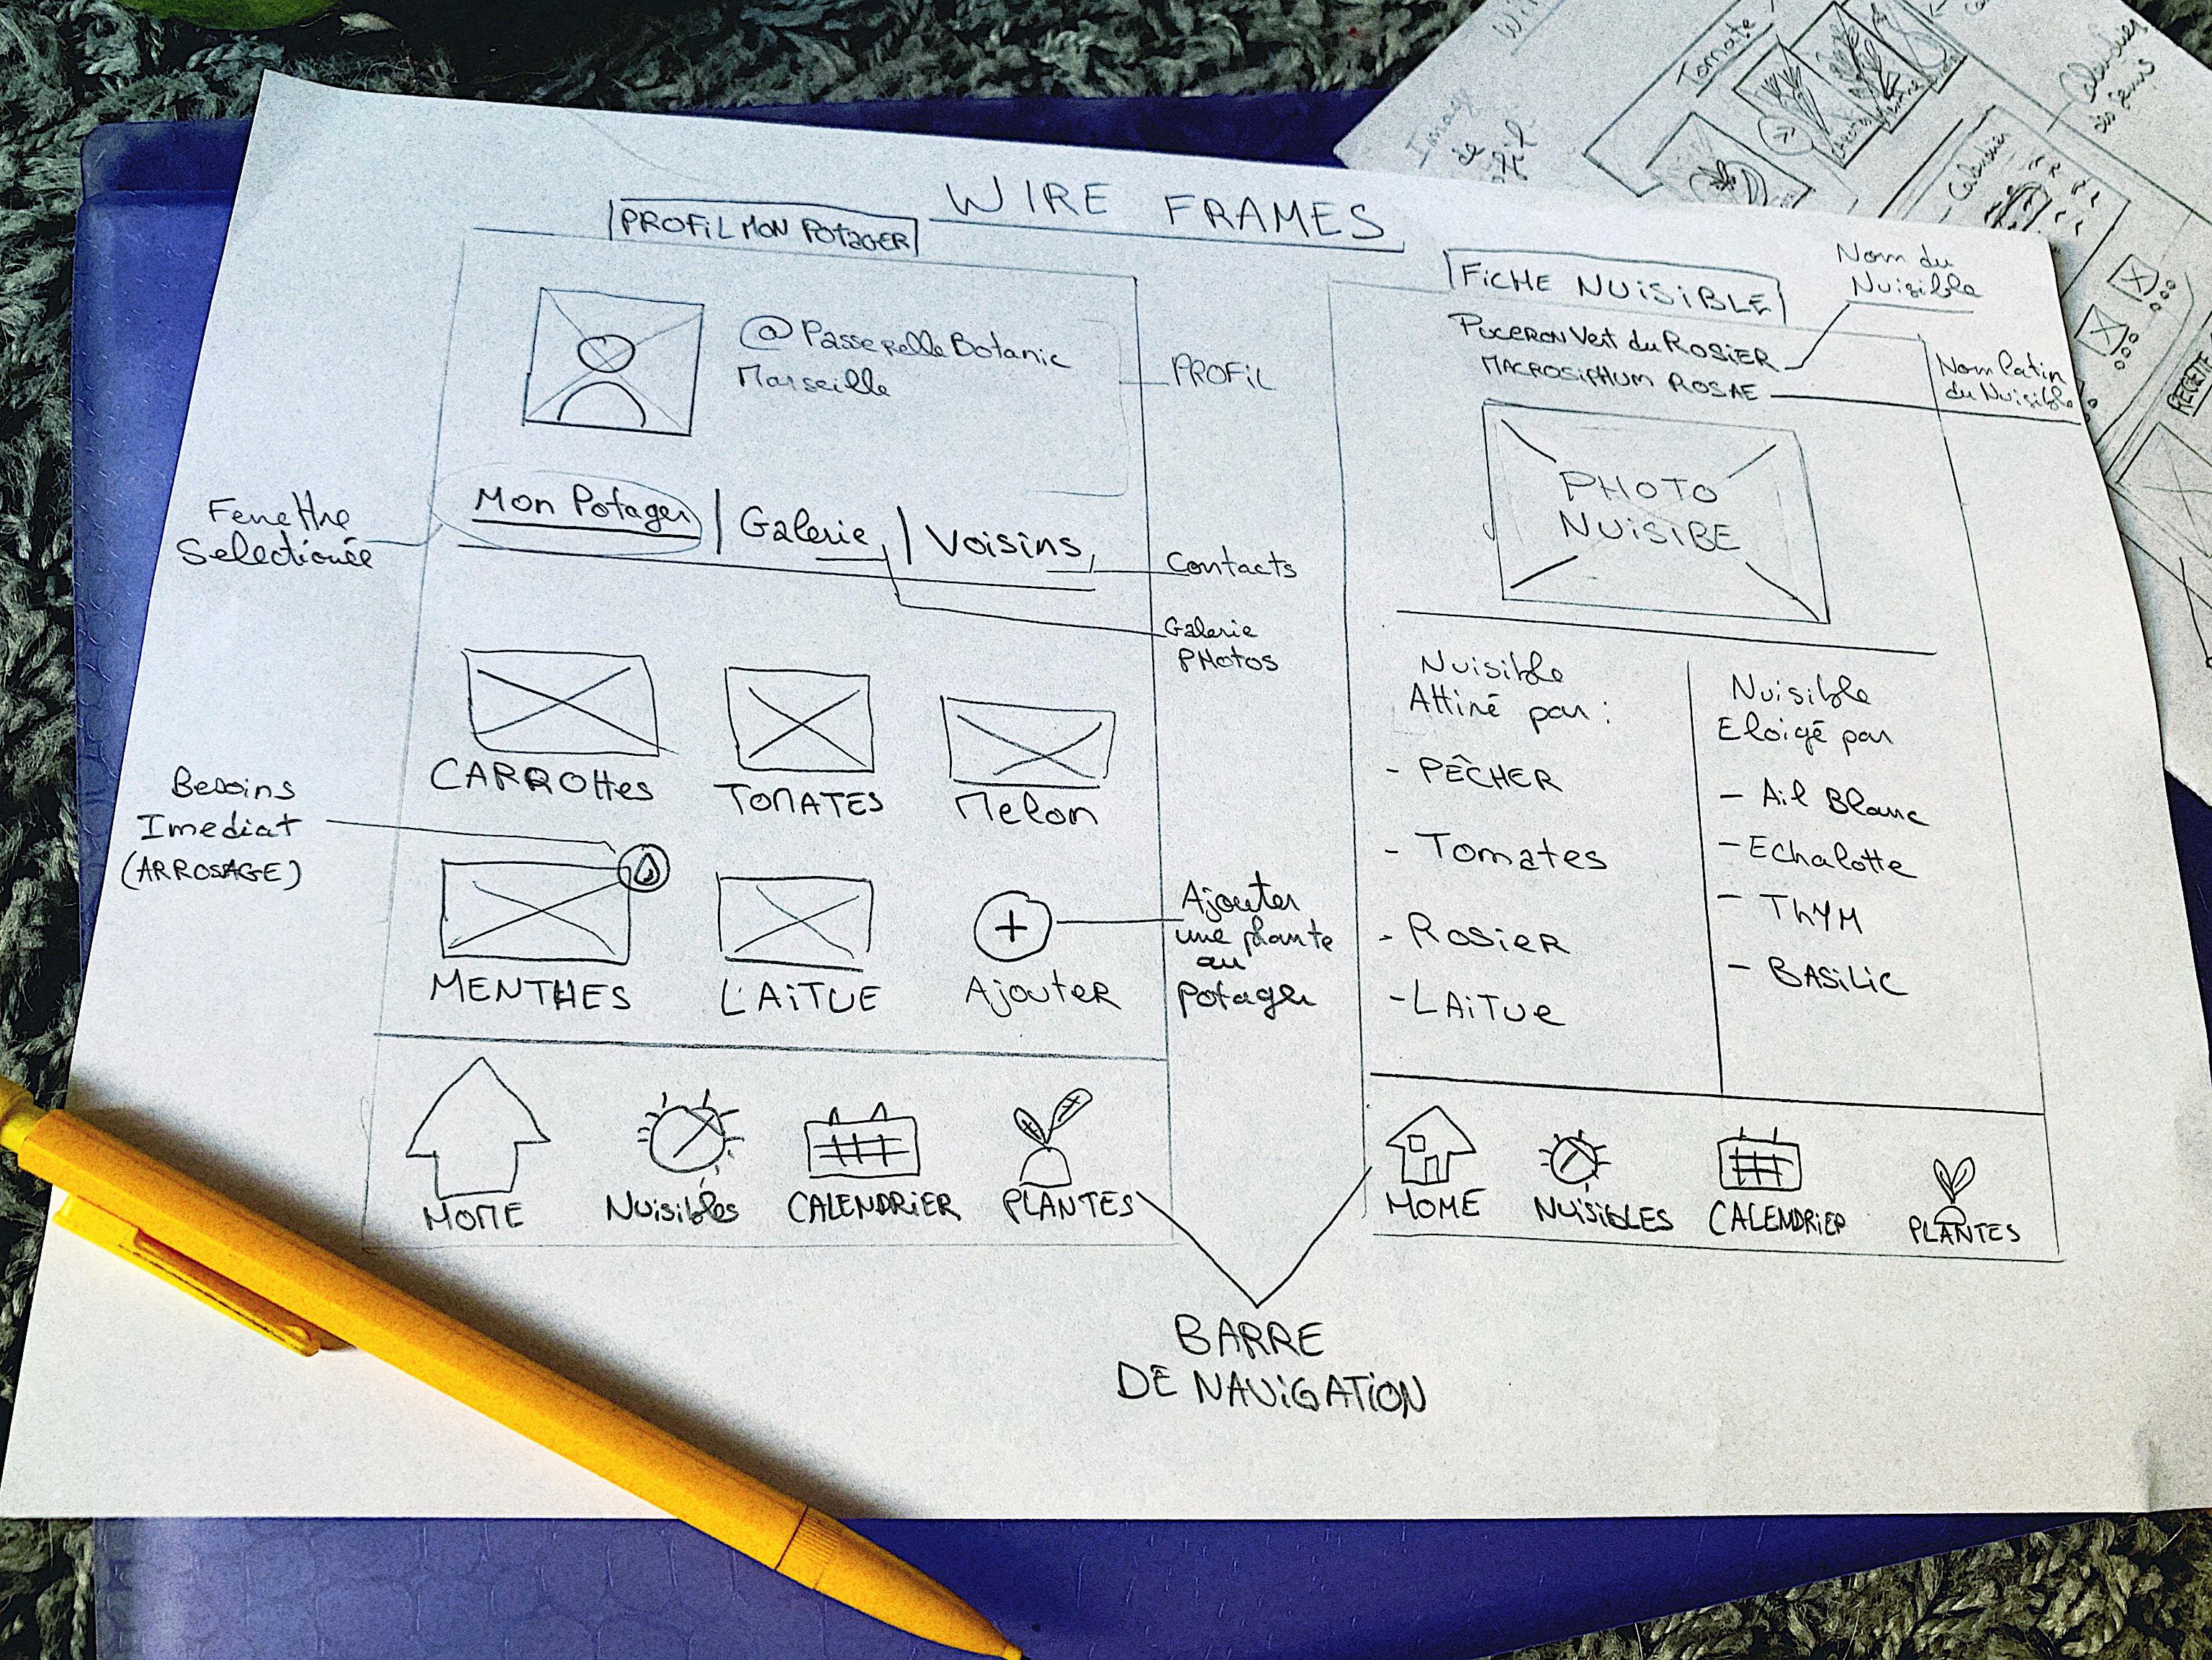 WIRE FRAMES
PROFIL MON POTAGER
@PasserelleBotanic
Marseille
PROFIL
Fenettre
Selectionée
Mon Potager | Galerie | Voisins
Contacts
Galerie
PHOTOS
CARROttes
TOMATES
Melon
Besoins
Imediat
(ARROSAGE)
MENTHES
LAITUE
AJOUTER
Ajouter
une plante
au
Potager
HOME
Nuisibles
CALENDRIER
PLANTES
FICHE NUISIBLE
Nom du
Nuisible
PUCERON Vert du ROSIER
MACROSIPHUM ROSAE
Nom latin
du Nuisible
PHOTO
NUISIBE
Nuisible
Attiré par :
- PÊCHER
- Tomates
- Rosier
- LAITUE
Nuisible
Eloigé par
- Ail Blanc
- Echalotte
- THYM
- BASILIC
HOME
NUISIBLES
CALENDRIER
PLANTES
BARRE
DE NAVIGATION
Tomate
Image
Calendrier
Calendrier
des Semis
RECETTE